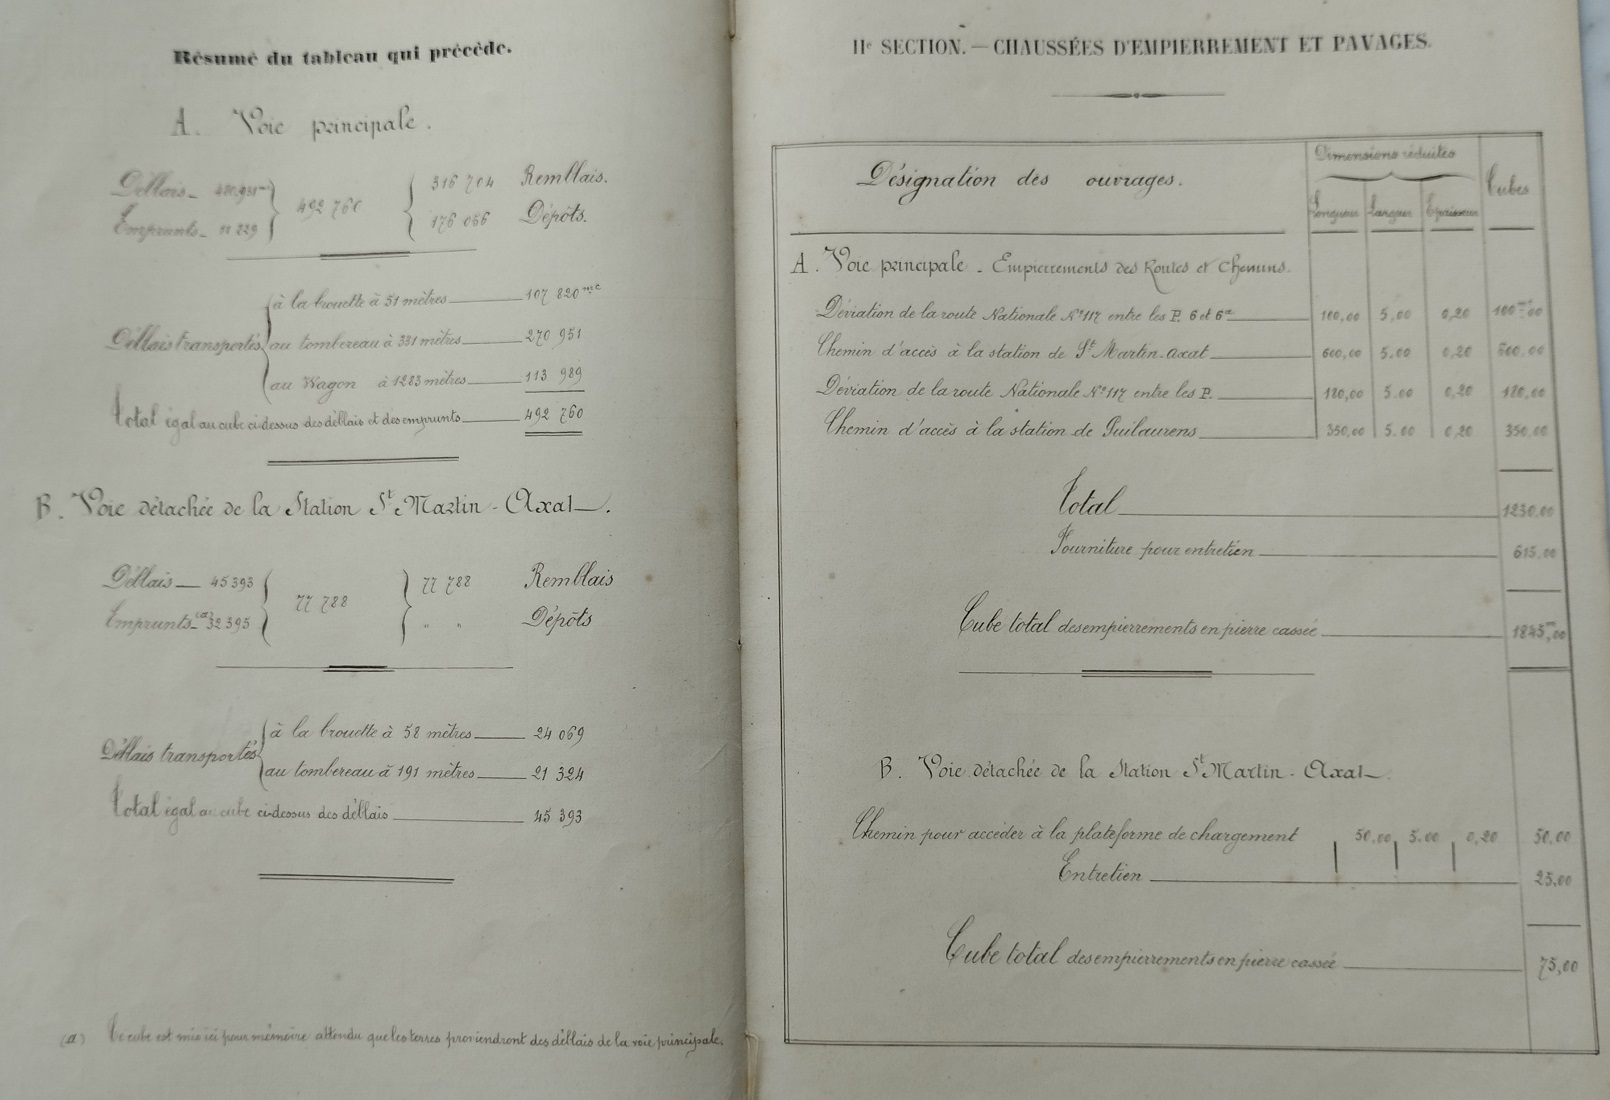 Résumé du tableau qui précède.
A. Voie principale.
Déblais _ 480,931 mc
Emprunts _ 11 829
492 760
316 704 Remblais.
176 056 Dépôts.
Déblais transportés
à la brouette à 51 mètres 107 820 mc
au tombereau à 331 mètres 270 951
au Wagon à 1283 mètres 113 989
Total égal au cube ci-dessus des déblais et des emprunts 492 760
B. Voie détachée de la Station St Martin-Axat.
Déblais 45 393
Emprunts (a) 32 395
77 788
77 788 Remblais
" " Dépôts
Déblais transportés
à la brouette à 58 mètres 24 069
au tombereau à 191 mètres 21 324
Total égal au cube ci-dessus des déblais 45 393
(a) Ce cube est mis ici pour mémoire attendu que les terres proviendront des déblais de la voie principale.
IIe SECTION. — CHAUSSÉES D'EMPIERREMENT ET PAVAGES.
Désignation des ouvrages. Dimensions réduites Cubes
Longueur Largeur Epaisseur
A. Voie principale _ Empierrements des Routes et Chemins.
Déviation de la route Nationale No 117 entre les P. 6 et 6a 100,00 5,00 0,20 100 mc 00
Chemin d'accès à la station de St Martin-Axat 600,00 5.00 0,20 600.00
Déviation de la route Nationale No 117 entre les P. 180,00 5.00 0,20 180,00
Chemin d'accès à la station de Puilaurens 350,00 5.00 0,20 350.00
Total 1230.00
Fourniture pour entretien 615,00
Cube total des empierrements en pierre cassée 1845 m,00
B. Voie détachée de la Station St Martin-Axat.
Chemin pour accéder à la plateforme de chargement 50,00 5.00 0,20 50,00
Entretien 25,00
Cube total des empierrements en pierre cassée 75,00